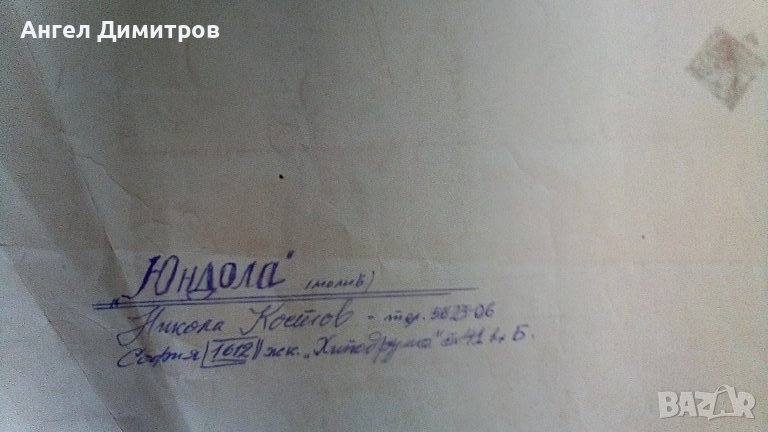 Ангел Димитров
„Юндола“ (молив)
Никола Костов - тел. 58 23-06
София (1612) жк. „Хиподрума“ бл 41 вх Б.
BAZAR